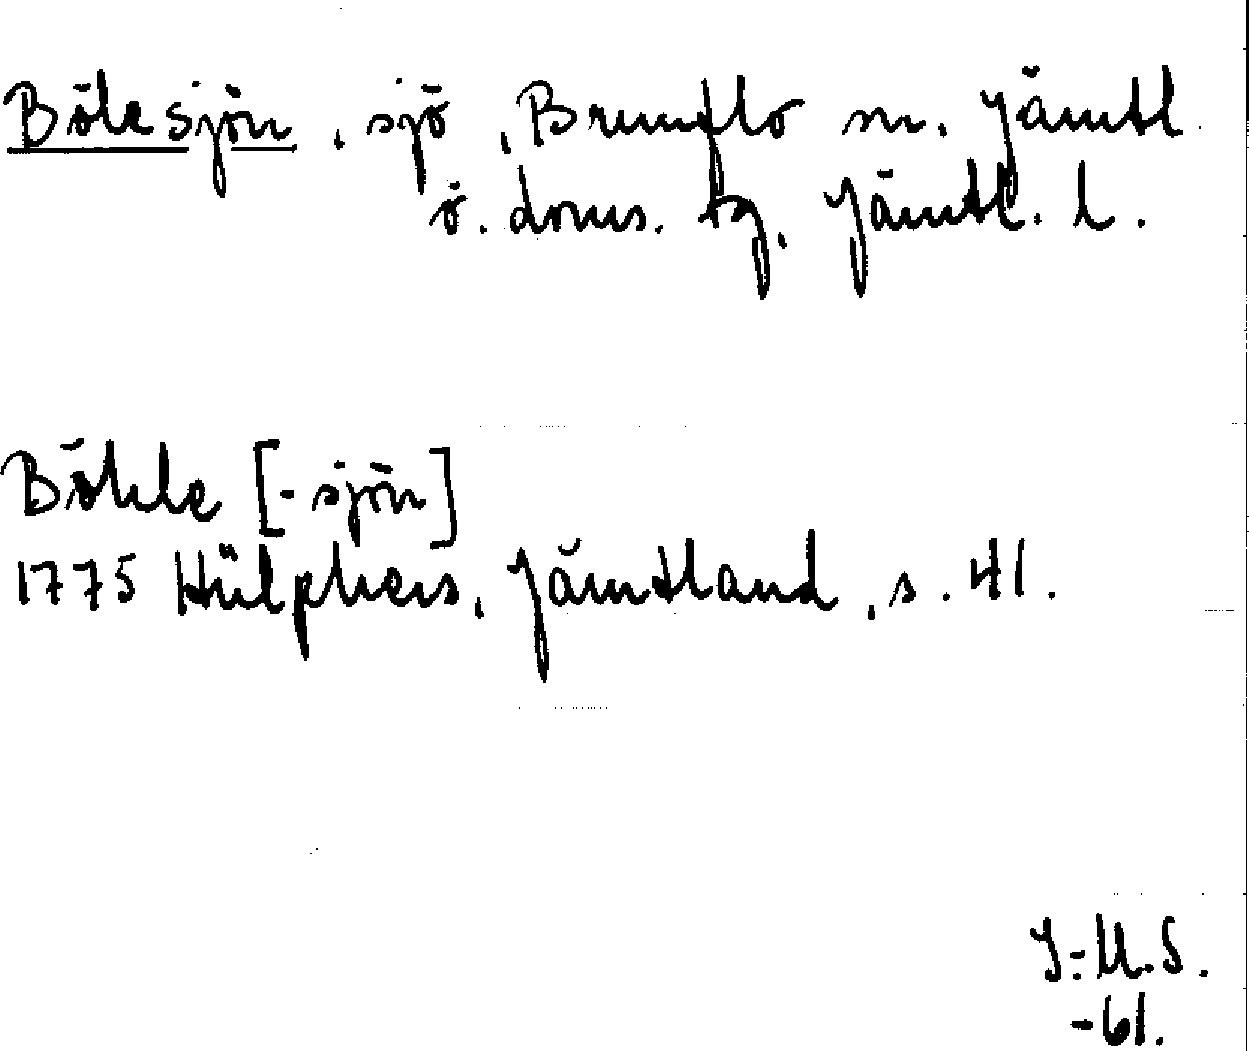 Bölesjön, sjö, Brunflo sn. Jämtl.
ö. doms. tg, Jämtl. l.
Böhle [-sjön]
1775 Hülphers, Jämtland, s. 41.
I-M.S.
-61.